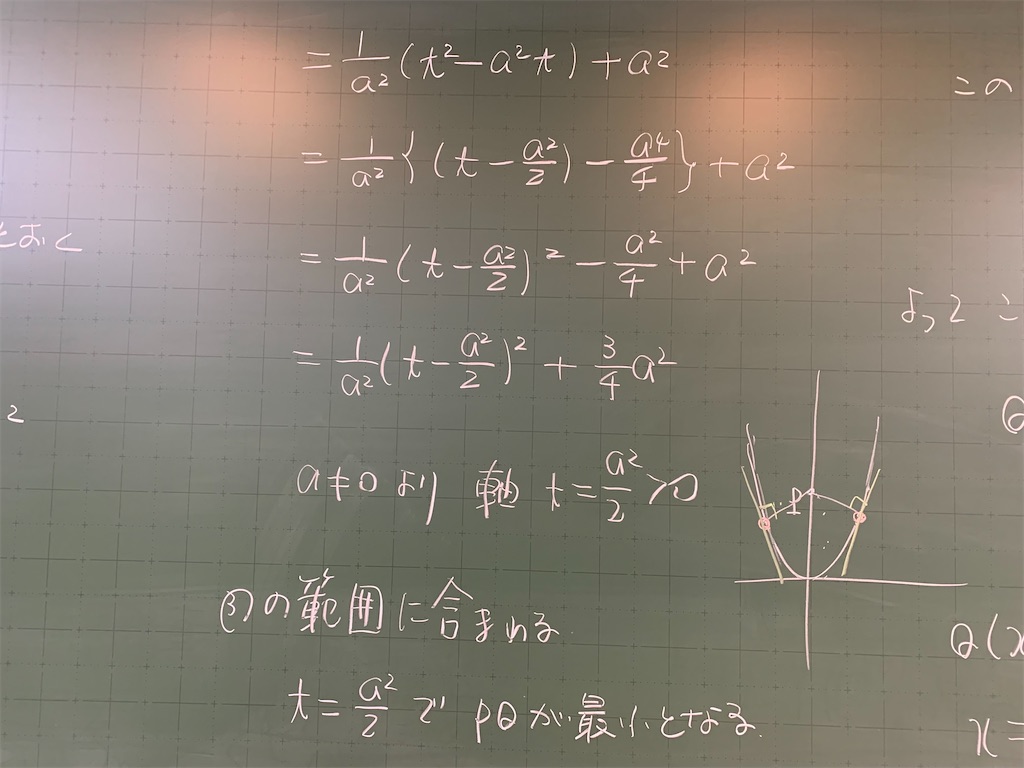 = 1/a² (t² - a²t) + a²
= 1/a² { (t - a²/2) - a⁴/4 } + a²
= 1/a² (t - a²/2)² - a²/4 + a²
= 1/a² (t - a²/2)² + 3/4 a²
a≠0 より 軸 t = a²/2 >0
③の範囲に合まれる
t = a²/2 で PQが最小となる.
とおく
2
P
この
よって こ
Q
Q(x
x=